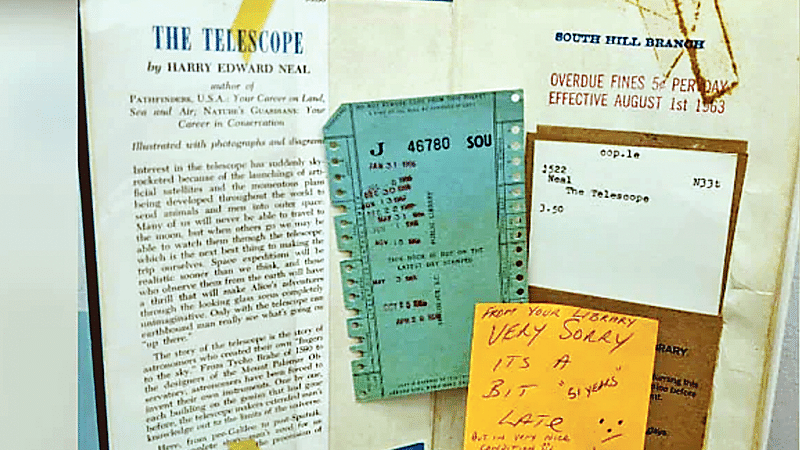 THE TELESCOPE
by HARRY EDWARD NEAL
author of
PATHFINDERS, U.S.A.: Your Career on Land,
Sea and Air; NATURE'S GUARDIANS: Your
Career in Conservation
Illustrated with photographs and diagrams
Interest in the telescope has suddenly sky-
rocketed because of the launchings of arti-
ficial satellites and the momentous plans
being developed throughout the world to
send animals and men into outer space.
Many of us will never be able to travel to
the moon, but when others go we may be
able to watch them through the telescope,
which is the next best thing to making the
trip ourselves. Space expeditions will be
realistic sooner than we think, and those
who observe them from the earth will have
a thrill that will make Alice's adventure
through the looking glass seem completely
unimaginative. Only with the telescope can
earthbound man really see what's going on
"up there."
The story of the telescope is the story of
astronomers who created their own "fingers
to the sky." From Tycho Brahe of 1560 to
the designers of the Mount Palomar Ob-
servatory, astronomers have been forced to
invent their own instruments. One by one,
each building on the genius that had gone
before, the telescope makers extended men's
knowledge out to the limits of the universe.
Here, from pre-Galileo to post-Sputnik,
J 46780 SOU
JAN 31 1966
NOV 15
PUBLIC LIBRARY
THIS BOOK IS DUE ON THE
LATEST DAY STAMPED
MAY 3
OCT 25
APR 26
SOUTH HILL BRANCH
OVERDUE FINES 5¢ PER DAY
EFFECTIVE AUGUST 1st 1963
cop.1e
1522
Neal N33t
The Telescope
3.50
FROM YOUR LIBRARY
VERY SORRY
ITS A
BIT "51 YEARS"
LATE
BUT IN VERY NICE
CONDITION